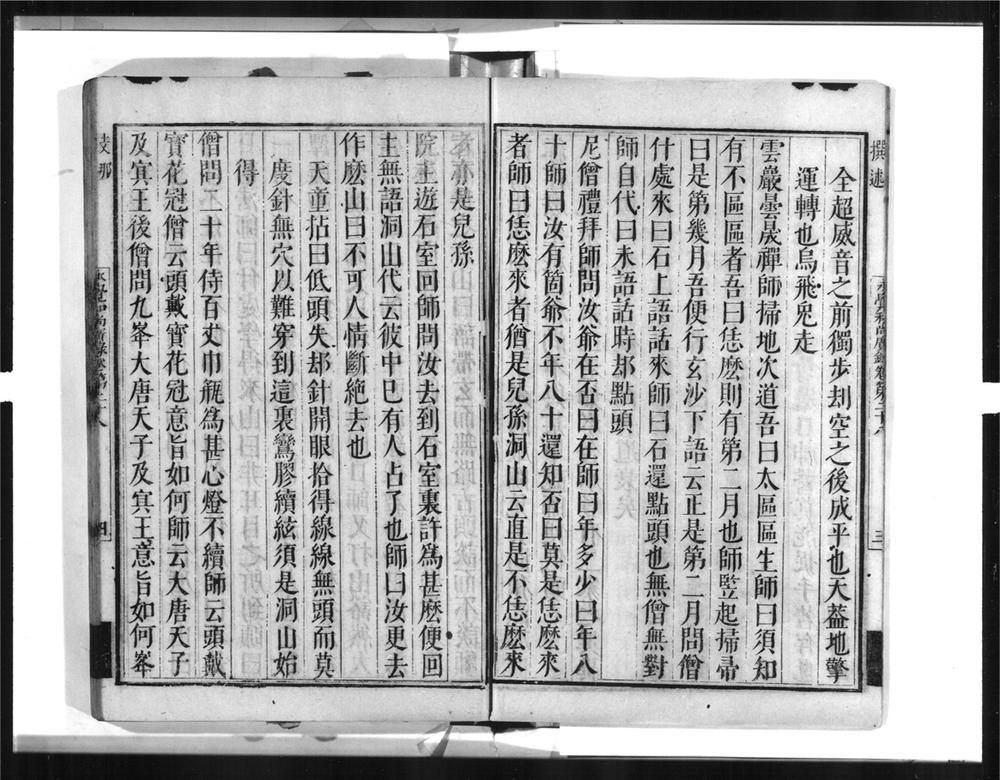 撰述
三
全超威音之前獨步刦空之後成平也天葢地擎
運轉也烏飛兎走
雲巖曇晟禪師掃地次道吾曰太區區生師曰須知
有不區區者吾曰恁麽則有第二月也師竪起掃帚
曰是第幾月吾便行玄沙下語云正是第二月問僧
什處來曰石上語話來師曰石還點頭也無僧無對
師自代曰未語話時却點頭
尼僧禮拜師問汝爺在否曰在師曰年多少曰年八
十師曰汝有箇爺不年八十還知否曰莫是恁麽來
者師曰恁麽來者猶是兒孫洞山云直是不恁麽來
者亦是兒孫
院主遊石室回師問汝去到石室裏許爲甚麽便回
主無語洞山代云彼中已有人占了也師曰汝更去
作麽山曰不可人情斷絶去也
天童拈曰低頭失却針開眼拾得線線無頭而莫
度針無穴以難穿到這裏鸞膠續絃須是洞山始
得
僧問二十年侍百丈巾瓶爲甚心燈不續師云頭戴
寳花冠僧云頭戴寳花冠意旨如何師云大唐天子
及冥王後僧問九峯大唐天子及冥王意旨如何峯
支那
四